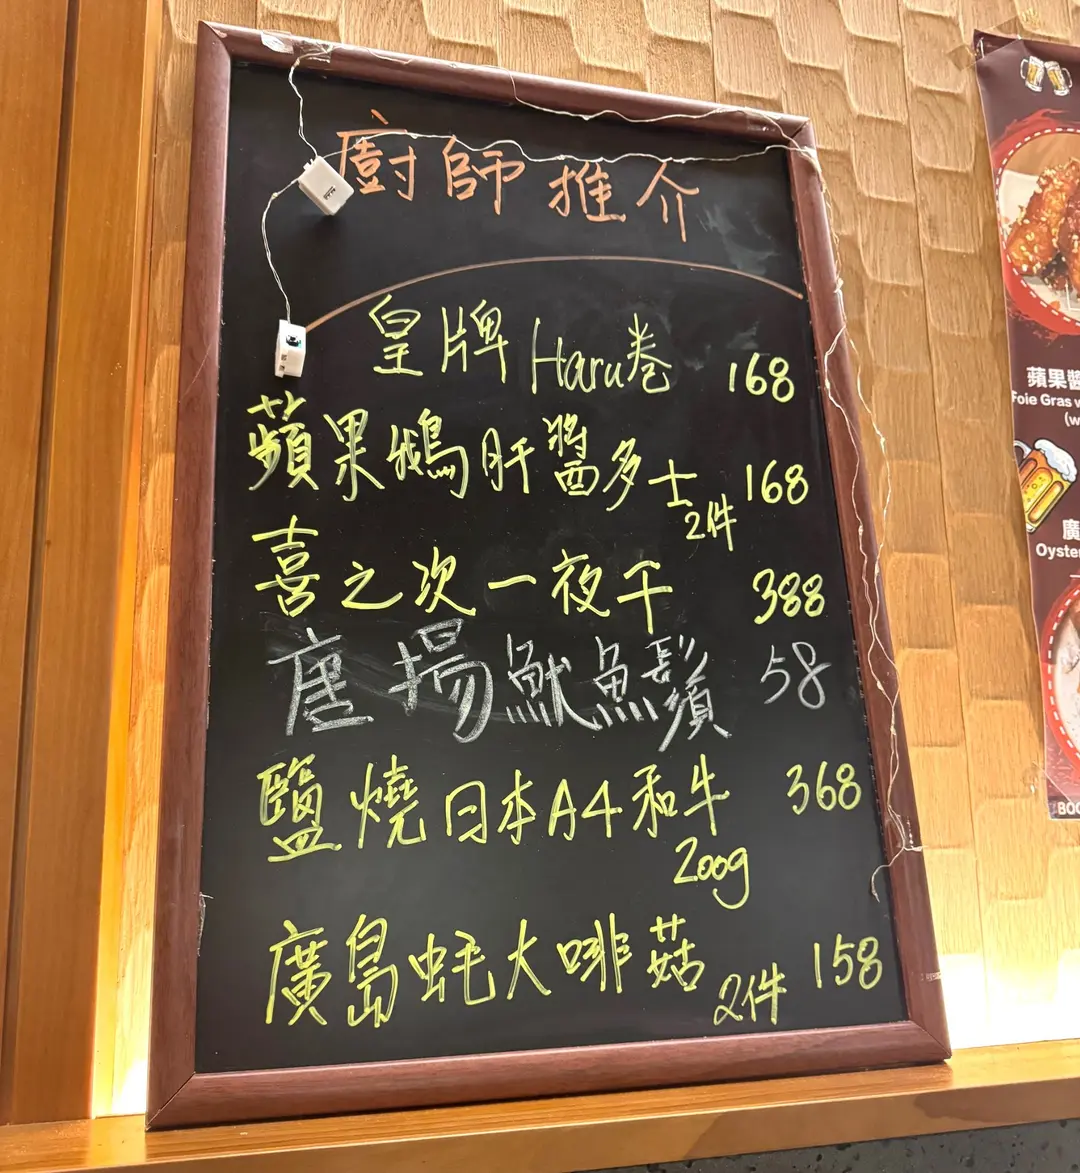 廚師推介
皇牌Haru卷 168
蘋果鵝肝醬多士 168
2件
喜之次一夜干 388
唐揚魷魚鬚 58
鹽燒日本A4和牛 368
200g
廣島蚝大啡菇 158
2件
蘋果醬
Foie Gras
廣
Oyste